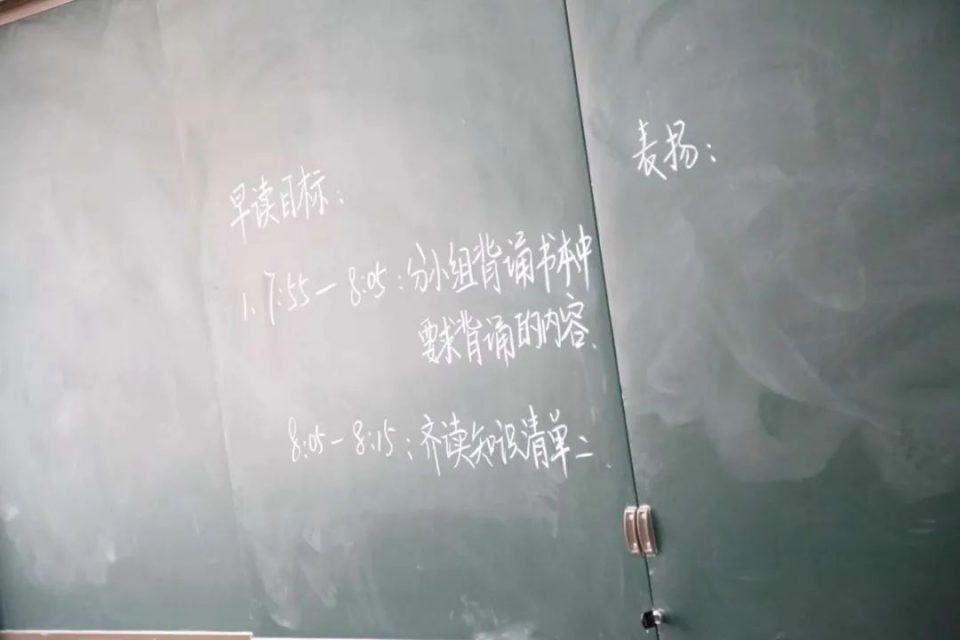 早读目标:
1、7:55-8:05:分小组背诵书本中
要求背诵的内容、
8:05-8:15:齐读知识清单二
表扬: